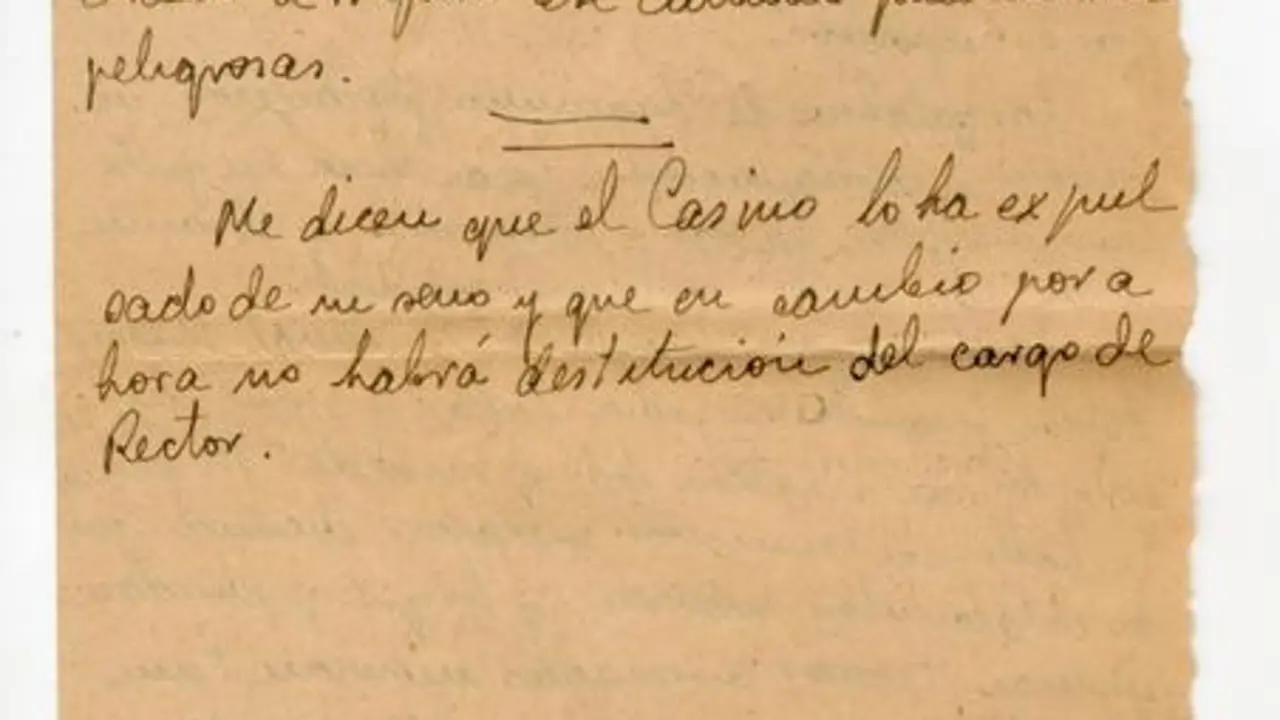 peligrosas.
Me dicen que el Casino lo ha expul
sado de su seno y que en cambio por a
hora no habrá destitución del cargo de
Rector.